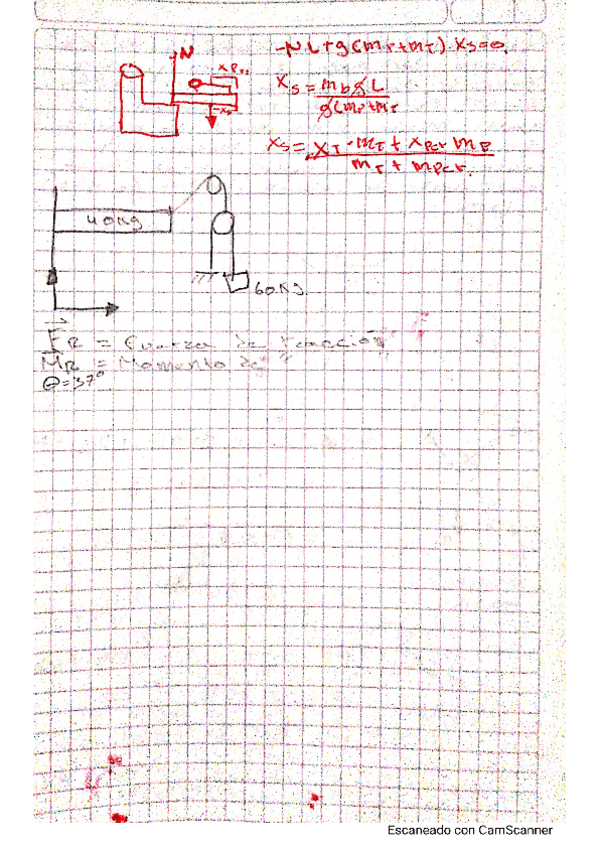 N
-NL+g(mp+mT).xs=0.
x Pcr
xs = mb g L
g(mp+mT
xs= xT.mT + xPcr mP
mT + mPcr.
40Kg
60Kg.
FR = Fuerza de reacción
MR = Momento de "
θ=37°
Escaneado con CamScanner